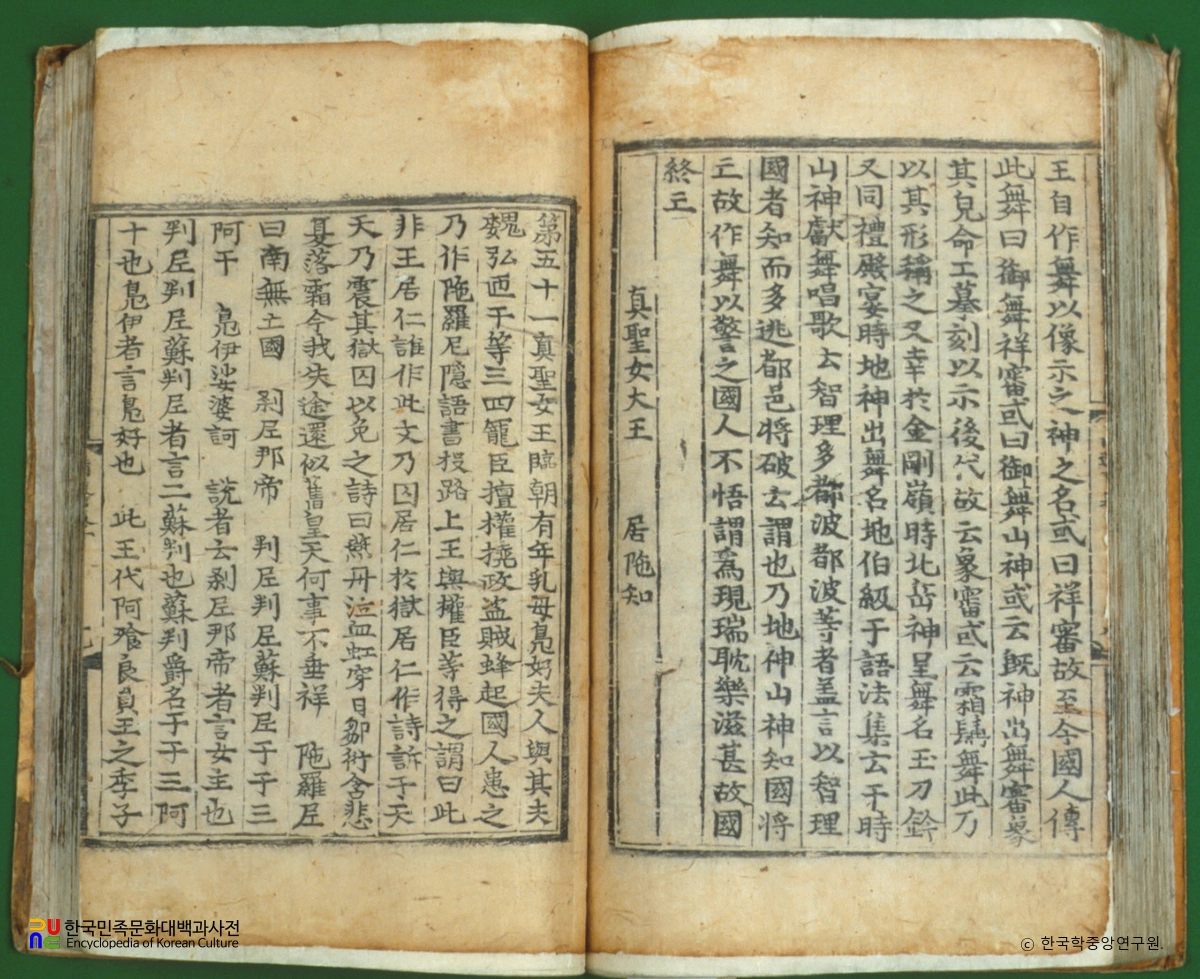 王自作舞以像示之神之名或曰祥審故至今國人傳
此舞曰御舞祥審或曰御舞山神或云旣神出舞審象
其皃命工摹刻以示後代故云象審或云霜髯舞此乃
以其形稱之又幸於金剛嶺時北岳神呈舞名玉刀鈐
又同禮殿宴時地神出舞名地伯級干語法集云于時
山神獻舞唱歌云智理多都波都波等者盖言以智理
國者知而多逃都邑將破云謂也乃地神山神知國將
亡故作舞以警之國人不悟謂爲現瑞耽樂滋甚故國
終亡
真聖女大王 居陁知
第五十一真聖女王臨朝有年乳母鳧好夫人與其夫
魏弘匝干等三四寵臣擅權撓政盗賊蜂起國人患之
乃作陁羅尼隱語書投路上王與權臣等得之謂曰此
非王居仁誰作此文乃囚居仁於獄居仁作詩訴于天
天乃震其獄囚以免之詩曰燕丹泣血虹穿日鄒衍含悲
夏落霜今我失途還似舊皇天何事不垂祥 陁羅尼
曰南無亡國 刹尼那帝 判尼判尼蘇判尼于于三
阿干 鳧伊娑婆訶 說者云刹尼那帝者言女主也
判尼判尼蘇判尼者言二蘇判也蘇判爵名于于三阿
十也鳧伊者言鳧好也 此王代阿飡良貟王之季子
한국민족문화대백과사전
Encyclopedia of Korean Culture
© 한국학중앙연구원.